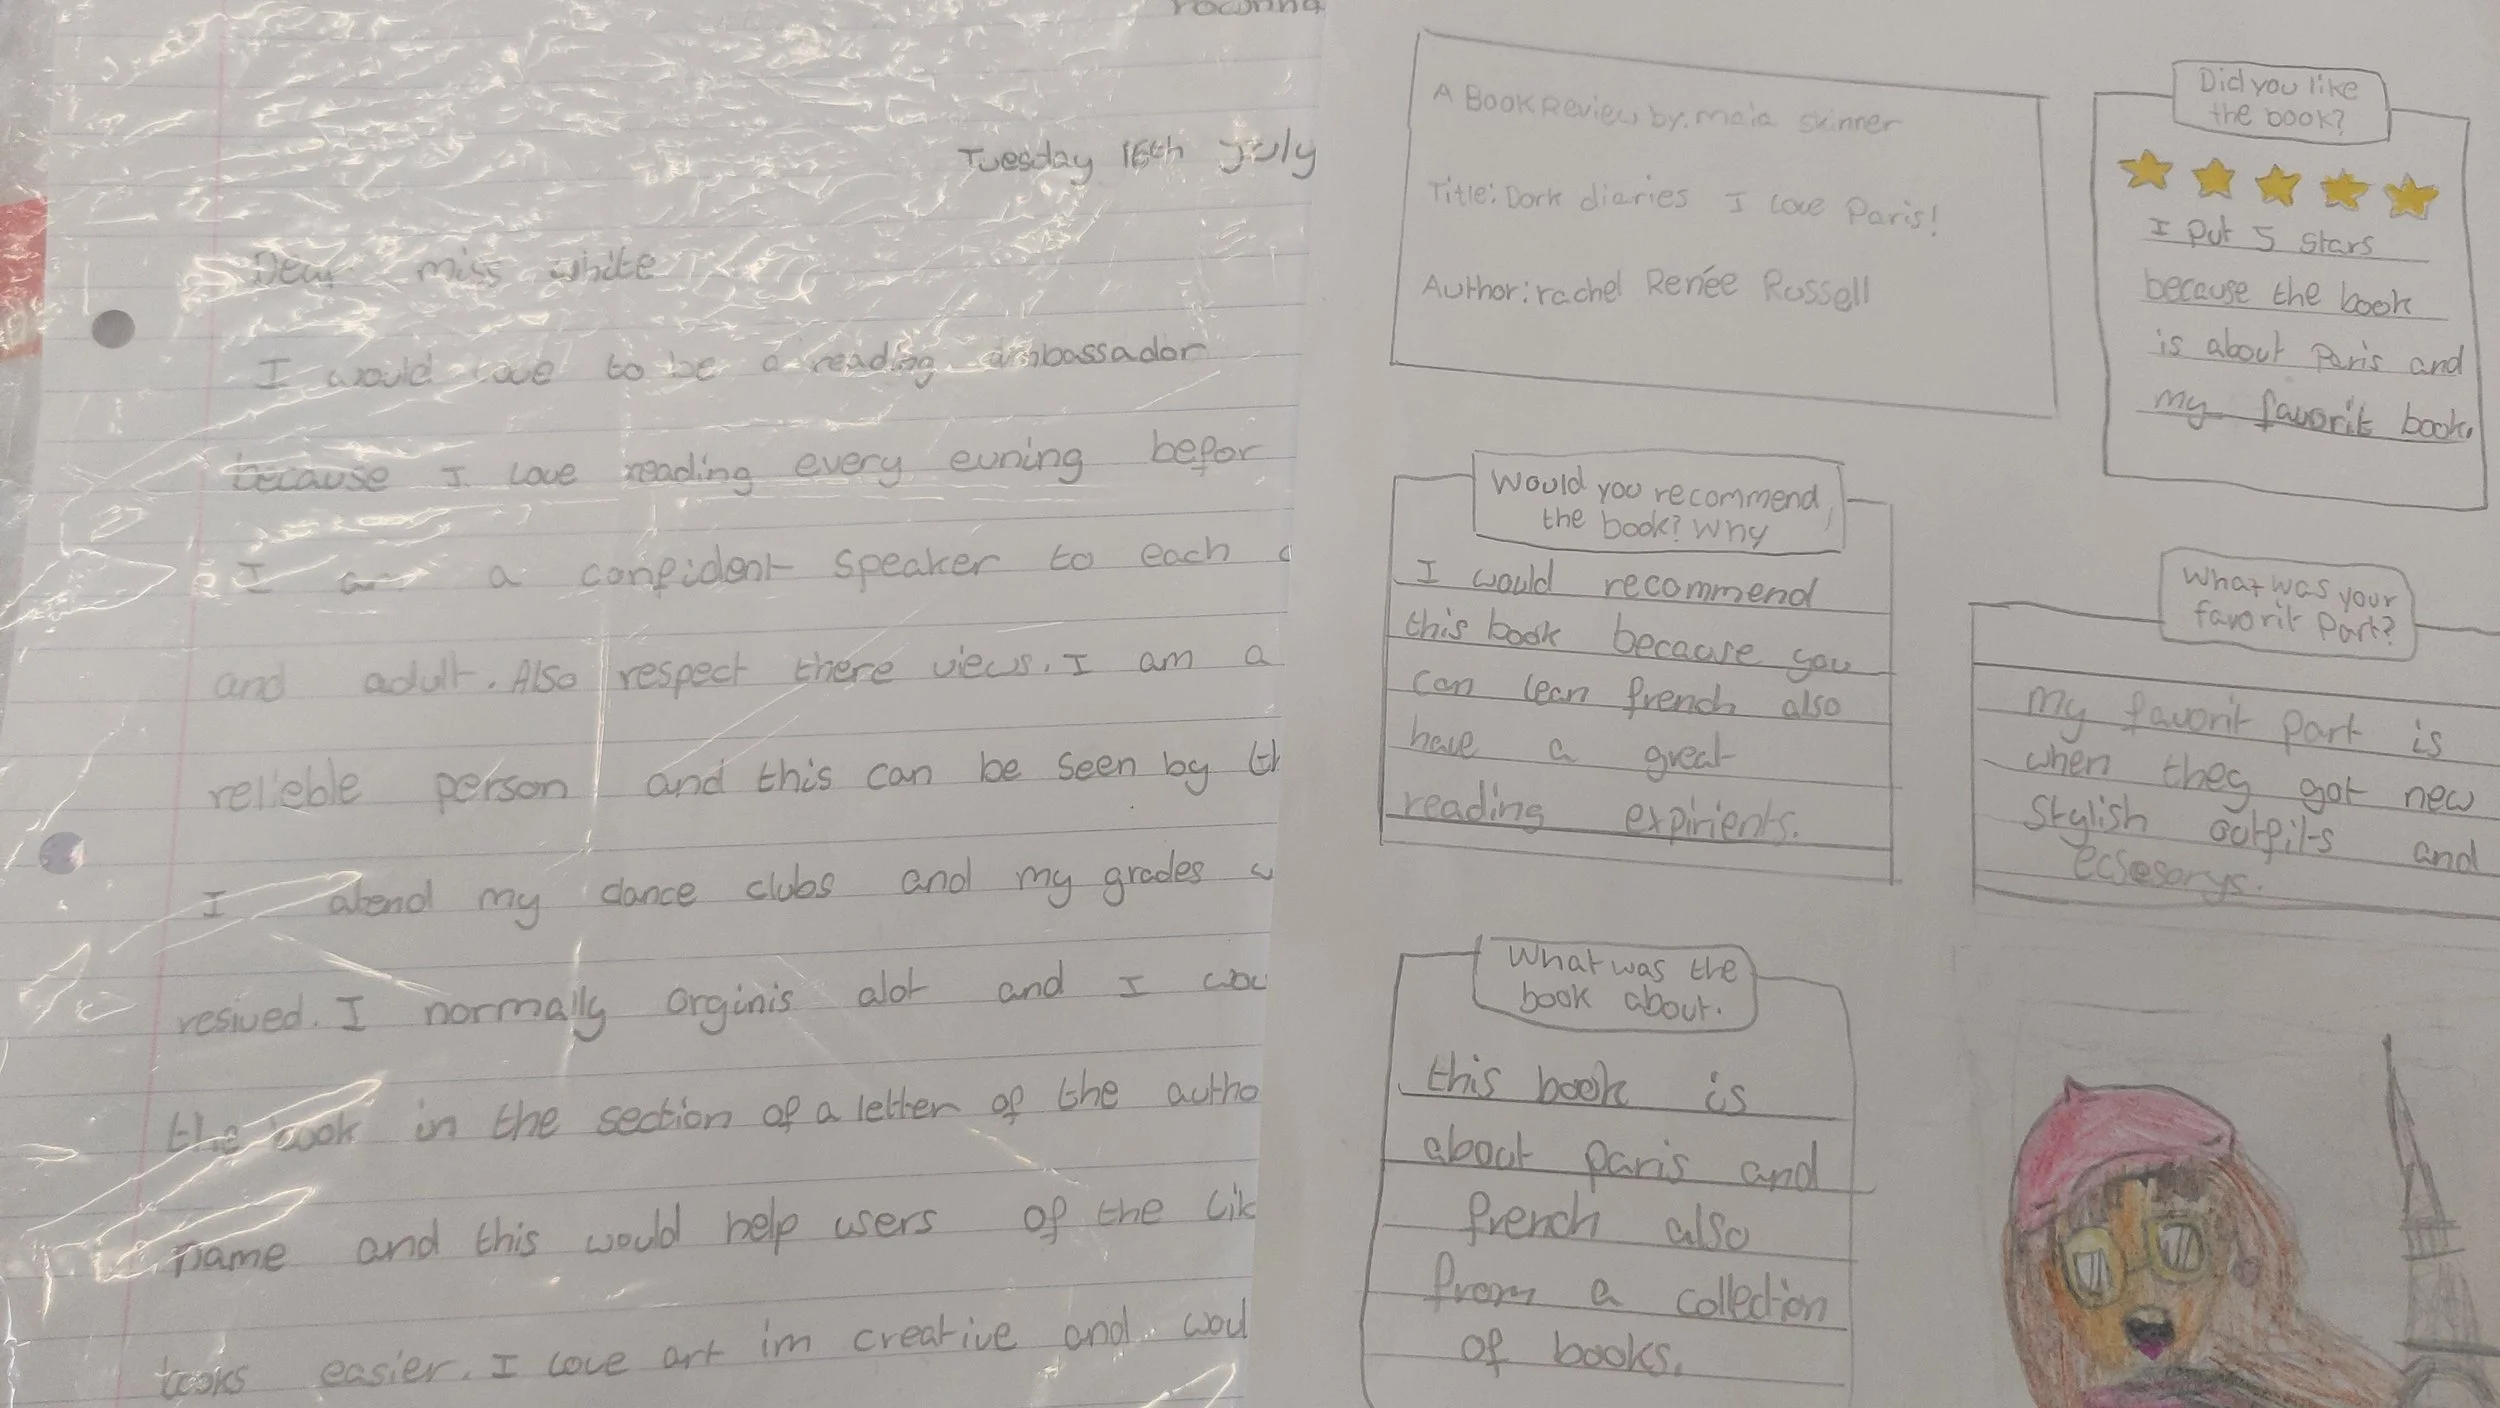 Tuesday 16th July
Dear miss white
I would love to be a reading ambassador
because I love reading every evning befor
I a a confident speaker to each
and adult. Also respect there views. I am a
relieble person and this can be seen by th
I atend my dance clubs and my grades
resived. I normally orginis alot and I wou
the book in the section of a letter of the autho
name and this would help users of the lib
books easier. I love art im creative and woul
A Book Review by. maia skinner
Title: Dork diaries I love Paris!
Author: rachel Renée Russell
Did you like
the book?
I put 5 stars
because the book
is about Paris and
my favorit book.
Would you recommend
the book? Why
I would recommend
this book because you
can lean french also
have a great
reading expirients.
What was your
favorit Part?
My favorit part is
when they got new
stylish outfits and
ecsesorys.
What was the
book about.
this book is
about paris and
french also
from a collection
of books.